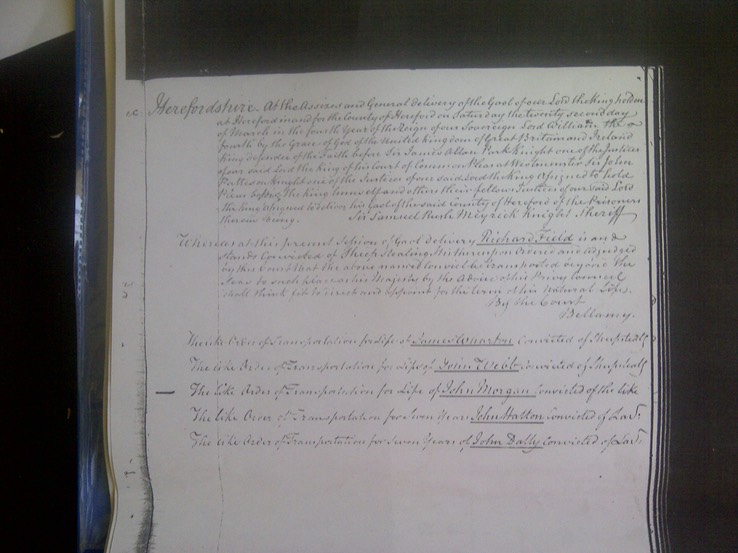 Herefordshire At the Assizes and General delivery of the Gaol of our Lord the King holden
at Hereford in and for the County of Hereford on Saturday the twenty second day
of March in the fourth Year of the Reign of our Sovereign Lord William the
fourth by the Grace of God of the United Kingdom of Great Britain and Ireland
King defender of the Faith before Sir James Allan Park Knight one of the Justices
of our said Lord the King of his Court of Common Pleas at Westminster Sir John
Patteson Knight one of the Justices of our said Lord the King Assigned to hold
Pleas before the King himself and others their fellows Justices of our said Lord
the King Assigned to deliver his Gaol of the said County of Hereford of the Prisoners
therein being. Sir Samuel Rush Meyrick Knight. Sheriff
Whereas at this present Session of Gaol delivery Richard Field is and
stands Convicted of Sheep Stealing It is thereupon Ordered and adjudged
by this Court that the above named Convict be transported beyond the
Seas to such place as his Majesty by the Advice of his Privy Council
shall think fit to direct and appoint for the term of his Natural Life.
By the Court
Bellamy.
The like Order of Transportation for Life of James Wharton Convicted of Sheepstealg
The like Order of Transportation for Life of John Webb Convicted of Sheepstealg
The like Order of Transportation for Life of John Morgan Convicted of the like
The like Order of Transportation for Seven Years John Walton Convicted of Lar
The like Order of Transportation for Seven Years of John Dally Convicted of Lar